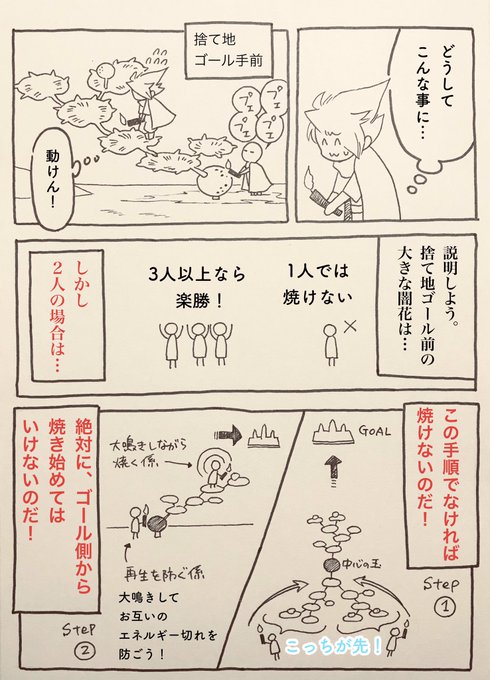 どうして
こんな事に…
捨て地
ゴール手前
プェ
プェ
プェ
プェ
動けん！
説明しよう。
捨て地ゴール前の
大きな闇花は…
1人では
焼けない
3人以上なら
楽勝！
しかし
2人の場合は…
この手順でなければ
焼けないのだ！
GOAL
中心の玉
Step
①
こっちが先！
大鳴きしながら
焼く係
再生を防ぐ係
大鳴きして
お互いの
エネルギー切れを
防ごう！
絶対に、ゴール側から
焼き始めては
いけないのだ！
Step
②